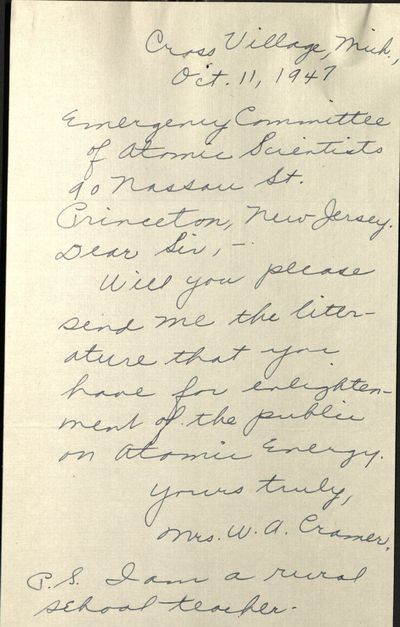 Cross Village, Mich.,
Oct. 11, 1947
Emergency Committee
of Atomic Scientists
90 Nassau St.
Princeton, New Jersey.
Dear Sir, –
Will you please
send me the liter–
ature that you
have for enlighten–
ment of the public
on Atomic Energy.
Yours truly,
Mrs. W. A. Cramer.
P.S. I am a rural
school teacher.